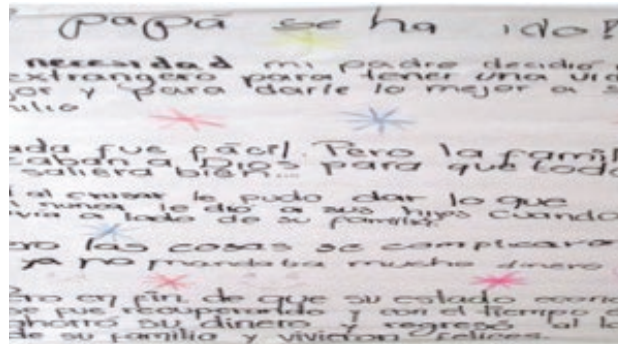 papá se ha ido!
necesidad mi padre decidió
extrangero para tener una vid
jor y para darle lo mejor a s
ilia
ada fue fácil. Pero la famil
caban a Dios para que todo
saliera bien...
al cruzar le pudo dar lo que
nunca le dio a sus hijos cuando
ivia a lado de su familia.
ero las cosas se complicaro
ya no mandaba mucho dinero
ero en fin de que su estado econo
se fue recuperando y con el tiempo
ahorró su dinero y regresó al la
de su familia y vivieron felices.